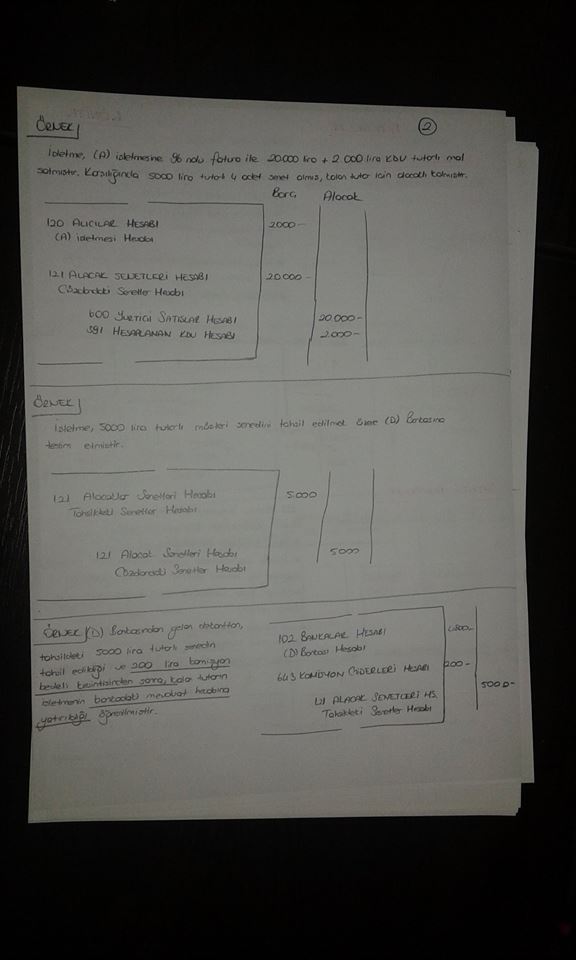 ÖRNEK
2
İşletme, (A) işletmesine 96 nolu fatura ile 20.000 lira + 2 000 lira KDV tutarlı mal
satmıştır. Karşılığında 5000 lira tutarlı 4 adet senet almış, kalan tutar için alacaklı kalmıştır.
Borç Alacak
120 ALICILAR HESABI 2000-
(A) işletmesi Hesabı
121 ALACAK SENETLERİ HESABI 20.000-
Cüzdandaki Senetler Hesabı
600 YURTİÇİ SATIŞLAR HESABI 20.000-
391 HESAPLANAN KDV HESABI 2.000-
ÖRNEK
İşletme, 5000 lira tutarlı müşteri senedini tahsil edilmek üzere (D) Bankasına
teslim etmiştir.
121 Alacaklar Senetleri Hesabı 5.000
Tahsildeki Senetler Hesabı
121 Alacak Senetleri Hesabı 5000
Cüzdandaki Senetler Hesabı
ÖRNEK (D) Bankasından gelen dekonttan,
tahsildeki 5000 lira tutarlı senedin
tahsil edildiği ve 200 lira komisyon
bedeli kesintisinden sonra, kalan tutarın
işletmenin bankadaki mevduat hesabına
yatırıldığı öğrenilmiştir.
102 BANKALAR HESABI 4.800-
(D) Bankası Hesabı
643 KOMİSYON GİDERLERİ HESABI 200-
121 ALACAK SENETLERİ HS. 5000-
Tahsildeki Senetler Hesabı